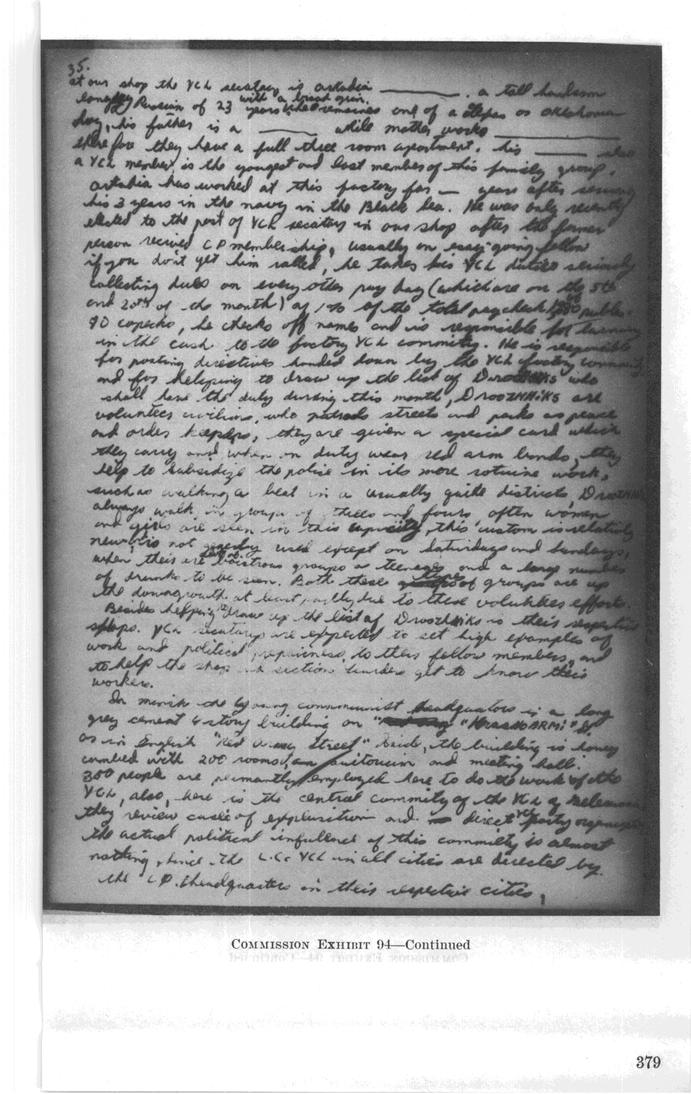 35.
at our shop the YCL secretary is arkadia ______. a tall handsom
Russian of 23 years with a broad grin. he reminds one of a Texas or Oklahoma
boy, his father is a ______ while mother works ______
therefore they have a full three room apartment. his ______ also
a YCL member is the youngest and last member of this family group.
arkadia has worked at this factory for — years after serving
his 3 years in the navy in the Black Sea. He was only recently
elected to the post of YCL secatery in our shop after the former
person recived C P membership, usually an easy-going fellow
if you don't get him railed, he takes his YCL duties seriously
collecting dues on every other pay day (which are on the 5th
and 20th of the month) of 1% of the total paycheck,
90 copecks, he checks off names and is responsible for turning
in the cash to the factory YCL commity. He is responsible
for posting directives handed down by the YCL factory commity
and for helpping to draw up the list of DROOZHNIKS who
shall have the duty during this month, DROOZHNIKS are
voluntees civilins, who patrols streets and parks as peace
and order keepers, they are given a special card which
they carry and when on duty wear red arm bands, they
help to subsidize the police in its more rotuine work,
such as walking a beat in a usually quite districts, DROOZHNIKS
always walk in groups of threes and fours, often women
and girls are seen in this capacity, this custom is relatively
new, is not used except on Saturdays and Sundays,
when their are boistrous groups of teenages and a large number
of drunks to be seen. Both these types of groups are up
the downgrowth at least, partly due to these voluntees efforts.
Besides helpping draw up the list of DROOZHNIKS in their respective
shops. YCL secataries are expected to set high examples of
work and political prepairness, to their fellow members, and
to help the shop and section leaders get to know their
workers.
In minsk the young communist headquators is a long
grey cement 4 story building on "KRASNOARMI" St.
as in English "Red Army Street" Inside, the building is honey
combed with 200 rooms, an auitorium and meeting hall.
300 people are permantly employed here to do the work of the
YCL, also, here is the central commity of the YCL of Belerussia
they review cases of expplusition and direct the party organizations
the actual political infulence of this commiety is almost
nothing, since the L.C. YCL in all cities are directed by
the C.P. Headquaters in their respective cities,
COMMISSION EXHIBIT 94—Continued
379